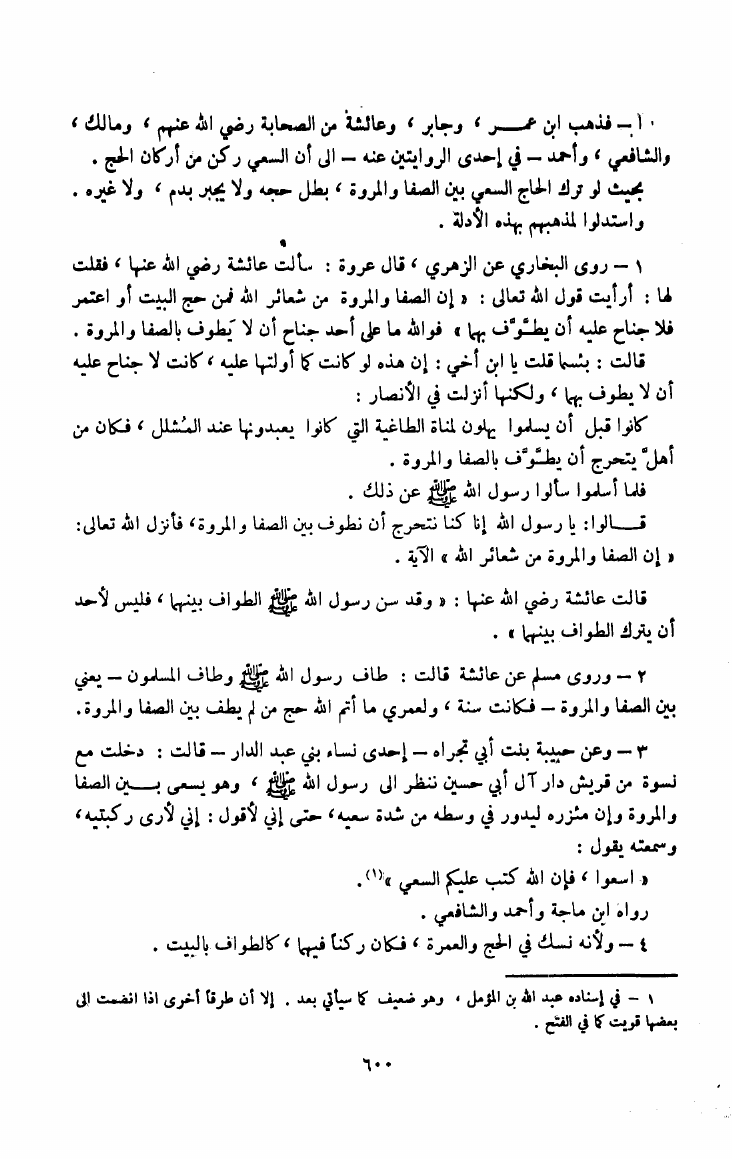 أ – فذهب ابن عمر ، وجابر ، وعائشة من الصحابة رضي الله عنهم ، ومالك ،
والشافعي ، وأحمد – في إحدى الروايتين عنه – الى أن السعي ركن من أركان الحج .
بحيث لو ترك الحاج السعي بين الصفا والمروة ، بطل حجه ولا يجبر بدم ، ولا غيره .
واستدلوا لمذهبهم بهذه الأدلة .
١ – روى البخاري عن الزهري ، قال عروة : سألت عائشة رضي الله عنها ، فقلت
لها : أرأيت قول الله تعالى : « إن الصفا والمروة من شعائر الله فمن حج البيت أو اعتمر
فلا جناح عليه أن يطَّوَّف بهما » فوالله ما على أحد جناح أن لا يَطوف بالصفا والمروة .
قالت : بئسما قلت يا ابن أخي : إن هذه لو كانت كما أولتها عليه ، كانت لا جناح عليه
أن لا يطوف بهما ، ولكنها أنزلت في الأنصار :
كانوا قبل أن يسلموا يهلون لمناة الطاغية التي كانوا يعبدونها عند المُشلل ، فكان من
أهلَّ يتحرج أن يطَّوَّف بالصفا والمروة .
فلما أسلموا سألوا رسول الله ﷺ عن ذلك .
قالوا: يا رسول الله إنا كنا نتحرج أن نطوف بين الصفا والمروة، فأنزل الله تعالى:
« إن الصفا والمروة من شعائر الله » الآية .
قالت عائشة رضي الله عنها : « وقد سن رسول الله ﷺ الطواف بينهما ، فليس لأحد
أن يترك الطواف بينهما » .
٢ – وروى مسلم عن عائشة قالت : طاف رسول الله ﷺ وطاف المسلمون – يعني
بين الصفا والمروة – فكانت سنة ، ولعمري ما أتم الله حج من لم يطف بين الصفا والمروة.
٣ – وعن حبيبة بنت أبي تجراه – إحدى نساء بني عبد الدار – قالت : دخلت مع
نسوة من قريش دار آل أبي حسين ننظر الى رسول الله ﷺ ، وهو يسعى بين الصفا
والمروة وإن مئزره ليدور في وسطه من شدة سعيه، حتى إني لأقول : إني لأرى ركبتيه،
وسمعته يقول :
« اسعوا ، فإن الله كتب عليكم السعي »(١).
رواه ابن ماجة وأحمد والشافعي .
٤ – ولأنه نسك في الحج والعمرة ، فكان ركناً فيهما ، كالطواف بالبيت .
١ – في إسناده عبد الله بن المؤمل ، وهو ضعيف كما سيأتي بعد . إلا أن طرقاً أخرى اذا انضمت الى
بعضها قويت كما في الفتح .
٦٠٠